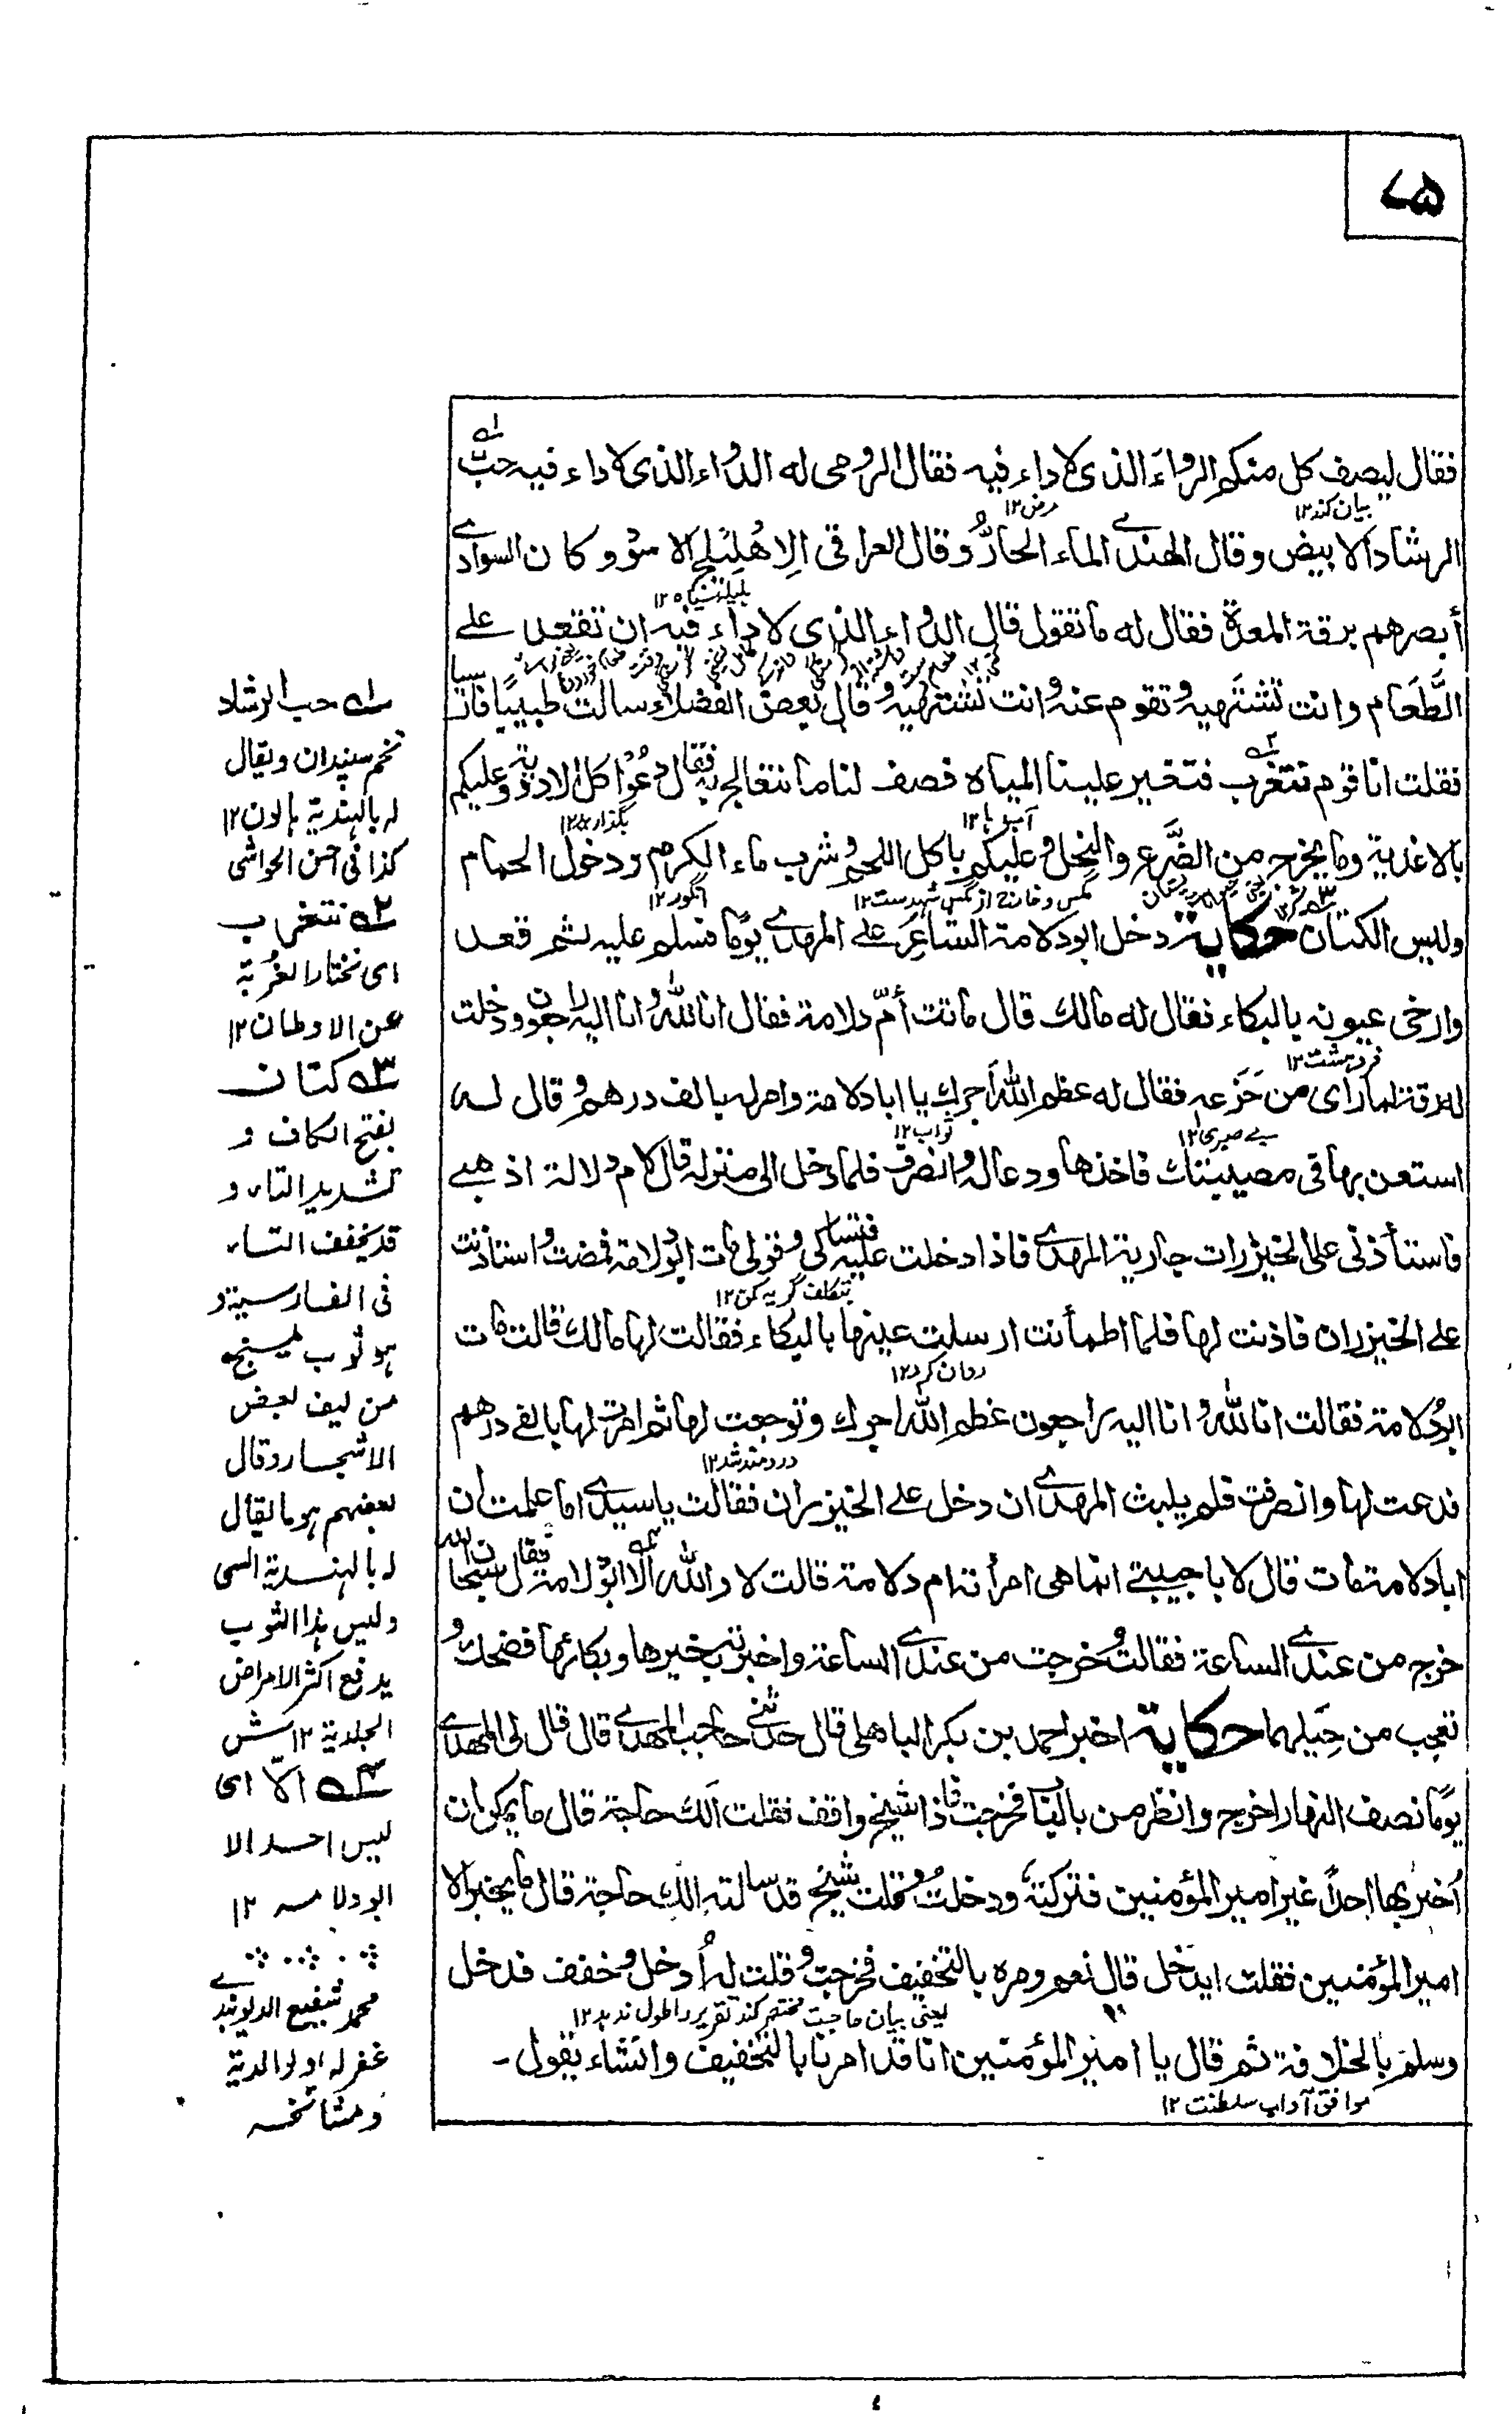 ۷۵
فقال ليصف كل منكم الدواءَ الذى لا داء فيه فقال الرومى له الدواء الذى لا داء فيه حبّ
بیان کند۱۲ مرض۱۲
الرشاد الابيض وقال الهندے الماء الحارّ وقال العراقى الإهليلج الاسود وكان السوادے
ہلیلہ سیاہ۱۲
أبصرهم برقة المعدة فقال له ما تقول قال الدواء الذى لا داء فيه ان تقعد علے
الطَّعَام وانت تشتَهيه وتقوم عنه وانت تشتهيه وقال بعض الفضلاء سالت طبيبًا
فقلت انا قوم نتغرب فتغير علينا المياه فصف لنا ما نتعالج به فقال دعُوا كل الادوية وعليكم
بگذارید۱۲ آبہا۱۲
بالاغذية وما يخرج من الضَّرع والنحل وعليكم باكل اللحم وشرب ماء الكرم ودخول الحمام
انگور۱۲
ولبس الكتان حكاية دخل ابو دلامة الشاعر علے المهدے يومًا فسلم عليه ثم قعد
وارخى عيونه بالبكاء فقال له مالك قال ماتت أمّ دلامة فقال انا لله وانا اليه راجعون ودخلت
فروہشت۱۲
له رقة لما راى من جَزَعه فقال له عظم الله اَجرك يا ابا دلامة وامر له بالف درهم وقال له
بے صبری۱۲ ثواب۱۲
استعن بها فى مصيبتك فاخذها ودعا له وانصرف فلما دخل الى منزله قال لام دلالة اذهبے
فاستأذنى على الخيزرات جارية المهدے فاذا دخلت عليه فتباكى وقولى مات ابو دلامة فمضت واستاذنت
بتکلف گریہ کن۱۲
علے الخيزران فاذنت لها فلما اطمأنت ارسلت عينها بالبكاء فقالت لها مالك قالت مات
روان کرد۱۲
ابو دُلامة فقالت انا لله وانا اليه راجعون عظم الله اجرك وتوجعت لها ثم امرت لها بالفے درهم
دردمند شد۱۲
فدعت لها وانصرفت فلم يلبث المهدے ان دخل علے الخيزران فقالت يا سيدے اما علمت ان
ابا دلامة مات قال لا يا حبيبتے انما هى امرأته ام دلامة قالت لا والله الا ابو دلامة فقال سبحان الله
خرج من عندے الساعة فقالت خرجت من عندے الساعة واخبرته بخبرها وبكائها فضحك و
تعجب من حِيَلهما حكاية اخبر احمد بن بكر الباهلى قال حدثنے حاجب المهدے قال قال لى المهدے
يومًا نصف النهار اخرج وانظر من بالباب فخرجت فاذا شيخ واقف فقلت الك حاجة قال ما يمكن ان
اُخبر بها احدًا غير امير المؤمنين فتركته ودخلت وقلت شيخ قد سالته الك حاجة قال ما يخبر الا
امير المؤمنين فقلت ايدخل قال نعم ومره بالتخفيف فخرجت وقلت له اُدخل وخفف فدخل
یعنی بیان حاجت مختصر کند تقریر را طول ندہد۱۲
وسلم بالخلافة ثم قال يا امير المؤمنين انا قد امرنا بالتخفيف وانشاء يقول۔
موافق آداب سلطنت۱۲
۱ حب الرشاد
تخم سپندان ویقال
لہ بالہندیۃ ہالون۱۲
کذا فی احسن الحواشی
۲ نتغرب
ای نختار الغربۃ
عن الاوطان۱۲
۳ کتان
بفتح الکاف و
تشدید التاء و
قد یخفف التاء
فی الفارسیۃ و
ہو ثوب ینسج
من لیف بعض
الاشجار وقال
بعضہم ہو ما یقال
لہ بالہندیۃ السی
ولبس ہذا الثوب
یدفع اکثر الامراض
الجلدیۃ ۱۲ ش
۴ الّا ای
لیس احد الا
ابو دلامہ ۱۲
محمد شفیع الدیوبندے
غفر لہ ولوالدیۃ
ومشائخہ